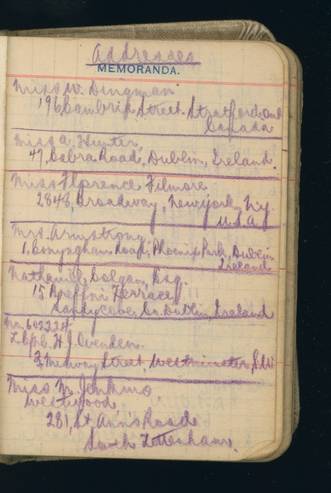 Addresses
MEMORANDA.
Miss W. Dingman
196 Cambria Street. Stratford, Ont
Canada
Miss A. Hunter,
47, Cabra Road, Dublin, Ireland.
Miss Florence Filmore
2848, Broadway, New York, N.Y.
U.S.A
Mrs. Armstrong
1, Conyngham Road, Phoenix Park, Dublin
Ireland
Nathaniel Colgan, Esq.
15 Terrace
Sandycove, Co. Dublin, Ireland
No. 602224
L/Cpl. H. J. Ovenden.
Medway Street, Westminster, S.W
Miss M. Jenkins
Westwood
281, St. Ann's Road
South Tottenham.